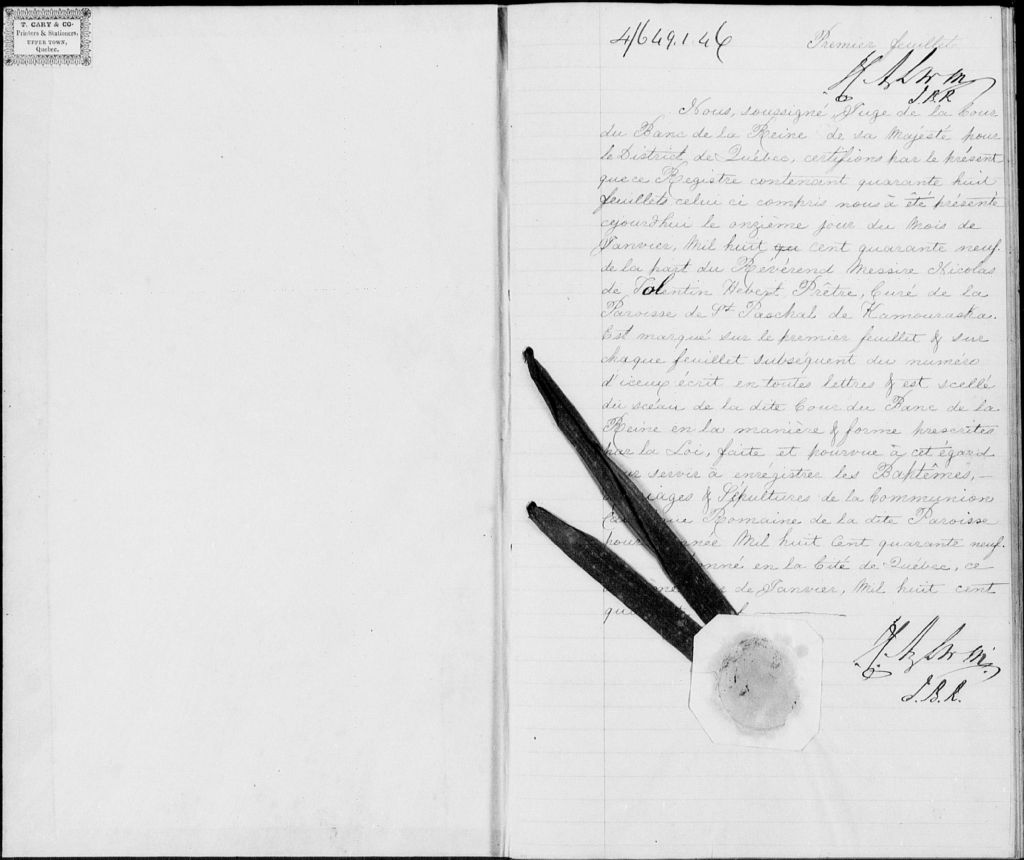 T. CARY & CO.
Printers & Stationers,
UPPER TOWN,
Quebec.
4649.1.46
Premier feuillet
J.B.R.
Nous, soussigné, Juge de la Cour
du Banc de la Reine de sa Majesté pour
le District de Québec, certifions par le présent
que ce Registre contenant quarante huit
feuillets celui ci compris nous à été présenté
cejourdhui le onzième jour du Mois de
Janvier, Mil huit qu cent quarante neuf.
de la part du Révérend Messire Nicolas
de Tolentin Hebert, Prêtre, Curé de la
Paroisse de St Paschal de Kamouraska.
Est marqué sur le premier feuillet & sur
chaque feuillet subséquent du numéro
d'iceux écrit en toutes lettres & est scellé
du scéau de la dite Cour du Banc de la
Reine en la manière & forme prescrites
par la Loi, faite et pourvue à cet égard
servir à enrégistrer les Baptêmes, —
iages & Sépultures de la Communion
que Romaine de la dite Paroisse
pour née Mil huit Cent quarante neuf.
onné en la Cité de Québec, ce
de Janvier, Mil huit cent
qu
J.B.R.